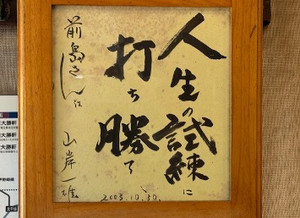 人生の試練に
打ち勝て
前島さん江
山岸一雄
2003.10.30.
大勝軒